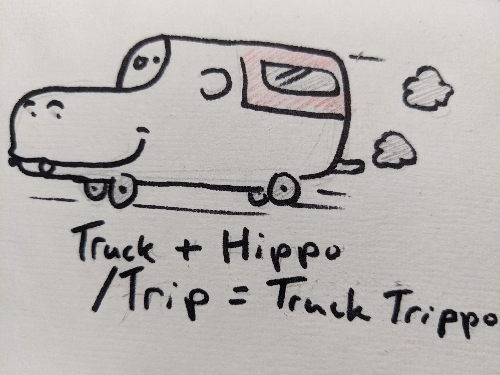 Truck + Hippo
/Trip = Truck Trippo